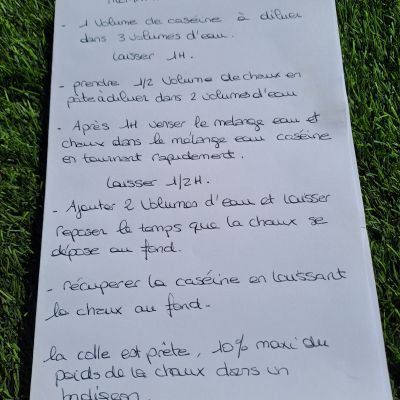 - 1 Volume de caséine à diluer
dans 3 volumes d'eau.
laisser 1H.
- prendre 1/2 Volume de chaux en
pâte à diluer dans 2 volumes d'eau
- Après 1H verser le mélange eau et
chaux dans le mélange eau caséine
en tournant rapidement.
laisser 1/2H.
- Ajouter 2 Volumes d'eau et laisser
reposer le temps que la chaux se
dépose au fond.
- récuperer la caséine en laissant
la chaux au fond.
la colle est prête, 10% maxi du
poids de la chaux dans un